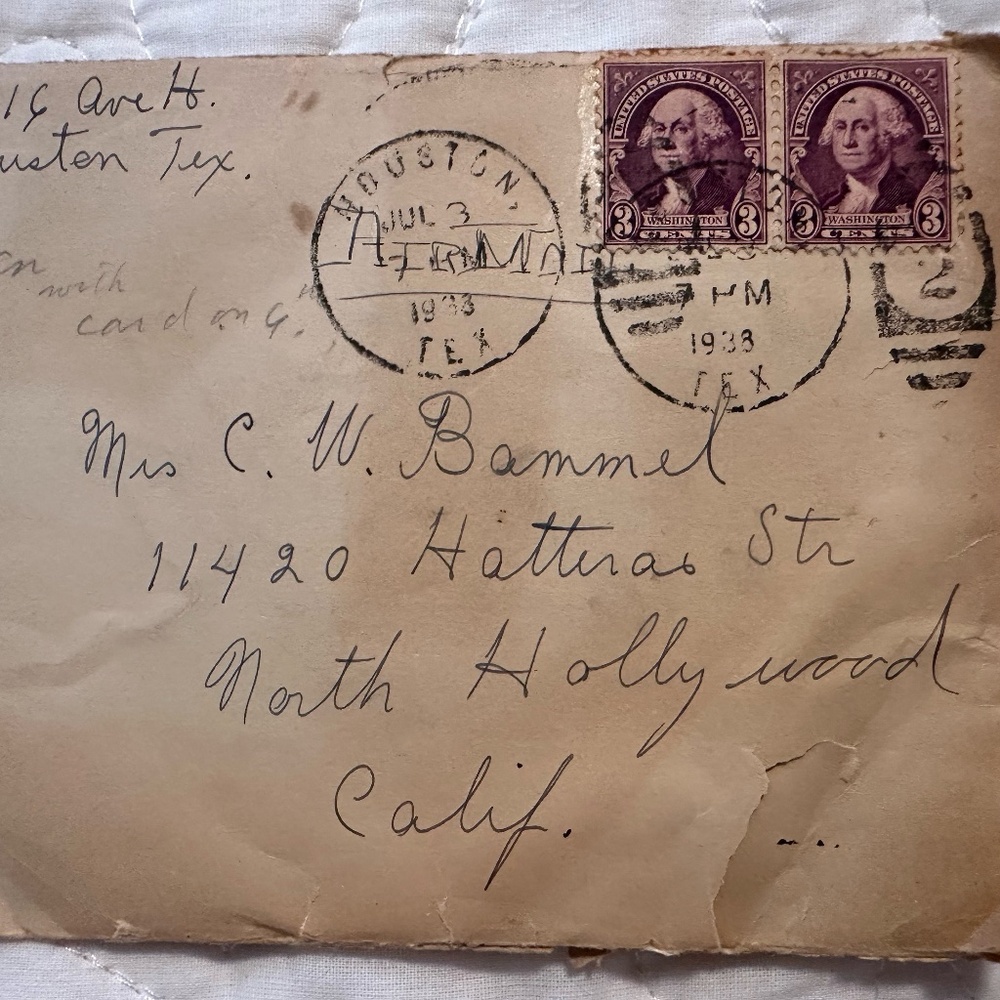 16 Ave H.
uston Tex.
UNITED STATES POSTAGE
3 WASHINGTON 3
UNITED STATES POSTAGE
3 WASHINGTON 3
HOUSTON,
JUL 3
1933
TEX
AIRMAIL
7 PM
1933
TEX
2
with
card on G.
Mrs C. W. Bammel
11420 Hatteras Str
North Hollywood
Calif.